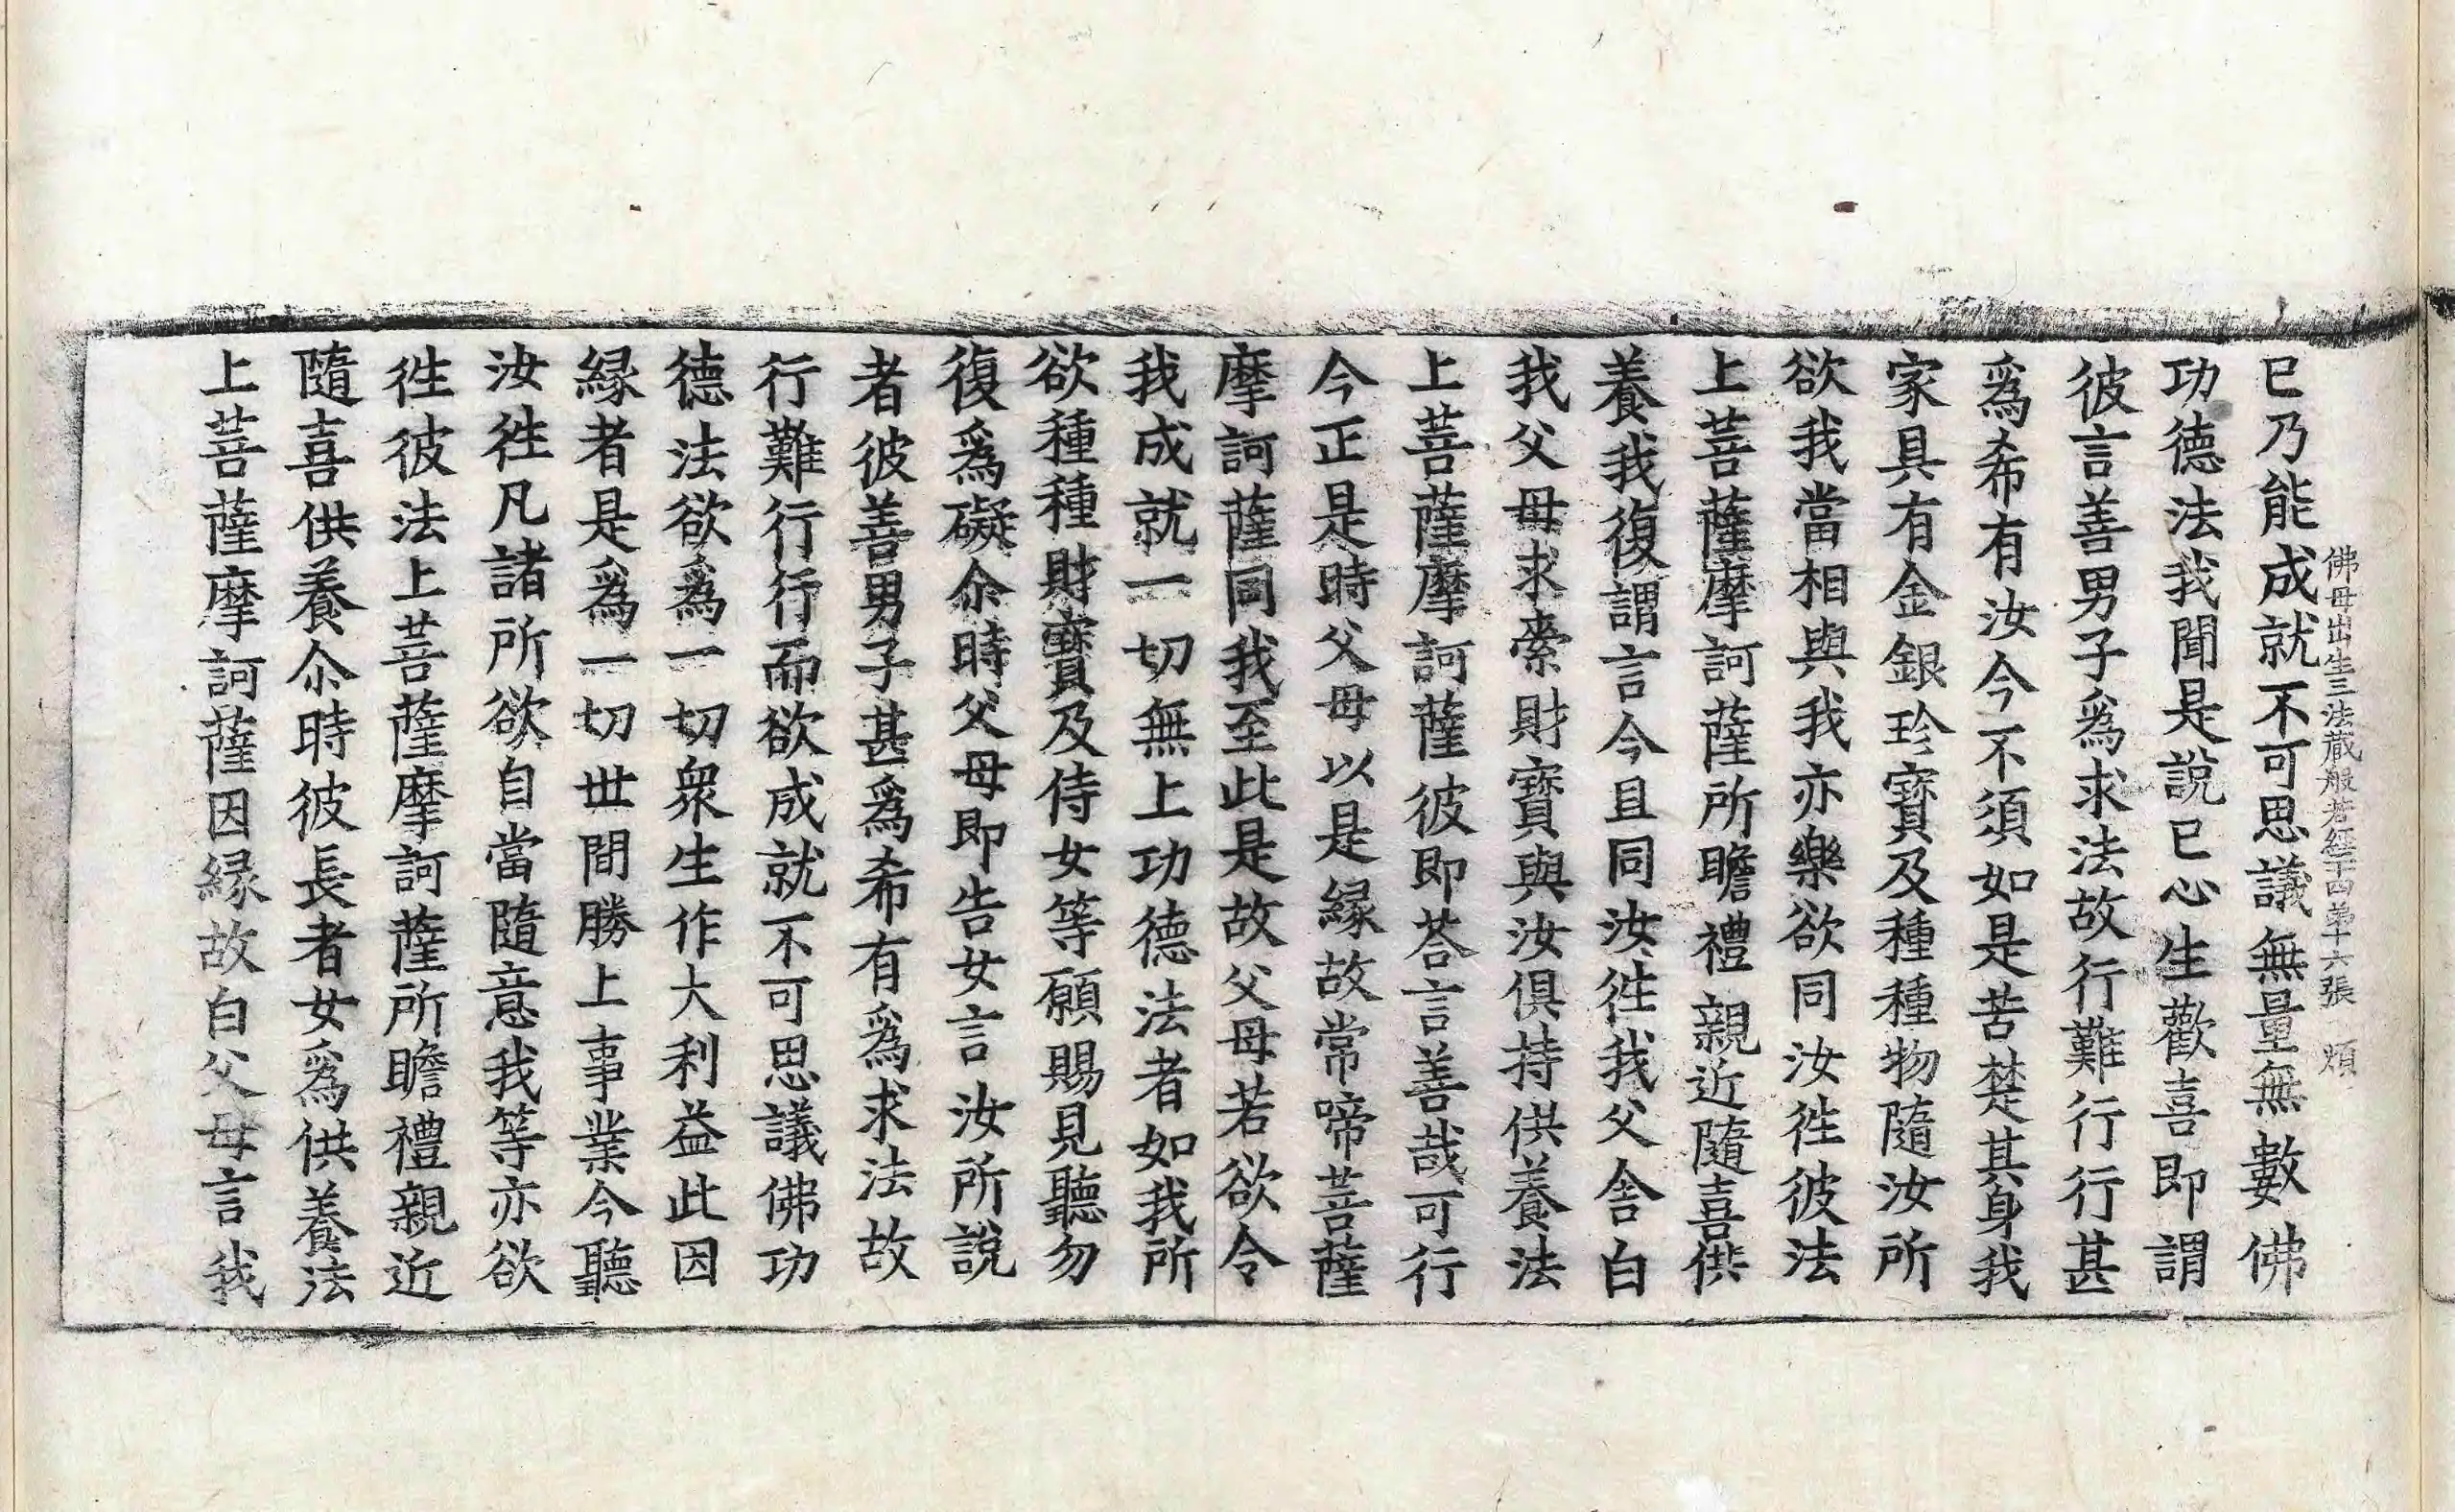 佛母出生三法藏般若經二十四第十六張 煩
已乃能成就不可思議無量無數佛
功德法我聞是說已心生歡喜即謂
彼言善男子爲求法故行難行行甚
爲希有汝今不須如是苦楚其身我
家具有金銀珍寶及種種物隨汝所
欲我當相與我亦樂欲同汝徃彼法
上菩薩摩訶薩所瞻禮親近隨喜供
養我復謂言今且同汝徃我父舍白
我父母求索財寶與汝俱持供養法
上菩薩摩訶薩彼即荅言善哉可行
今正是時父母以是緣故常啼菩薩
摩訶薩同我至此是故父母若欲令
我成就一切無上功德法者如我所
欲種種財寶及侍女等願賜見聽勿
復爲礙尒時父母即告女言汝所說
者彼善男子甚爲希有爲求法故
行難行行而欲成就不可思議佛功
德法欲爲一切衆生作大利益此因
緣者是爲一切世間勝上事業今聽
汝徃凡諸所欲自當隨意我等亦欲
徃彼法上菩薩摩訶薩所瞻禮親近
隨喜供養尒時彼長者女爲供養法
上菩薩摩訶薩因緣故白父母言我